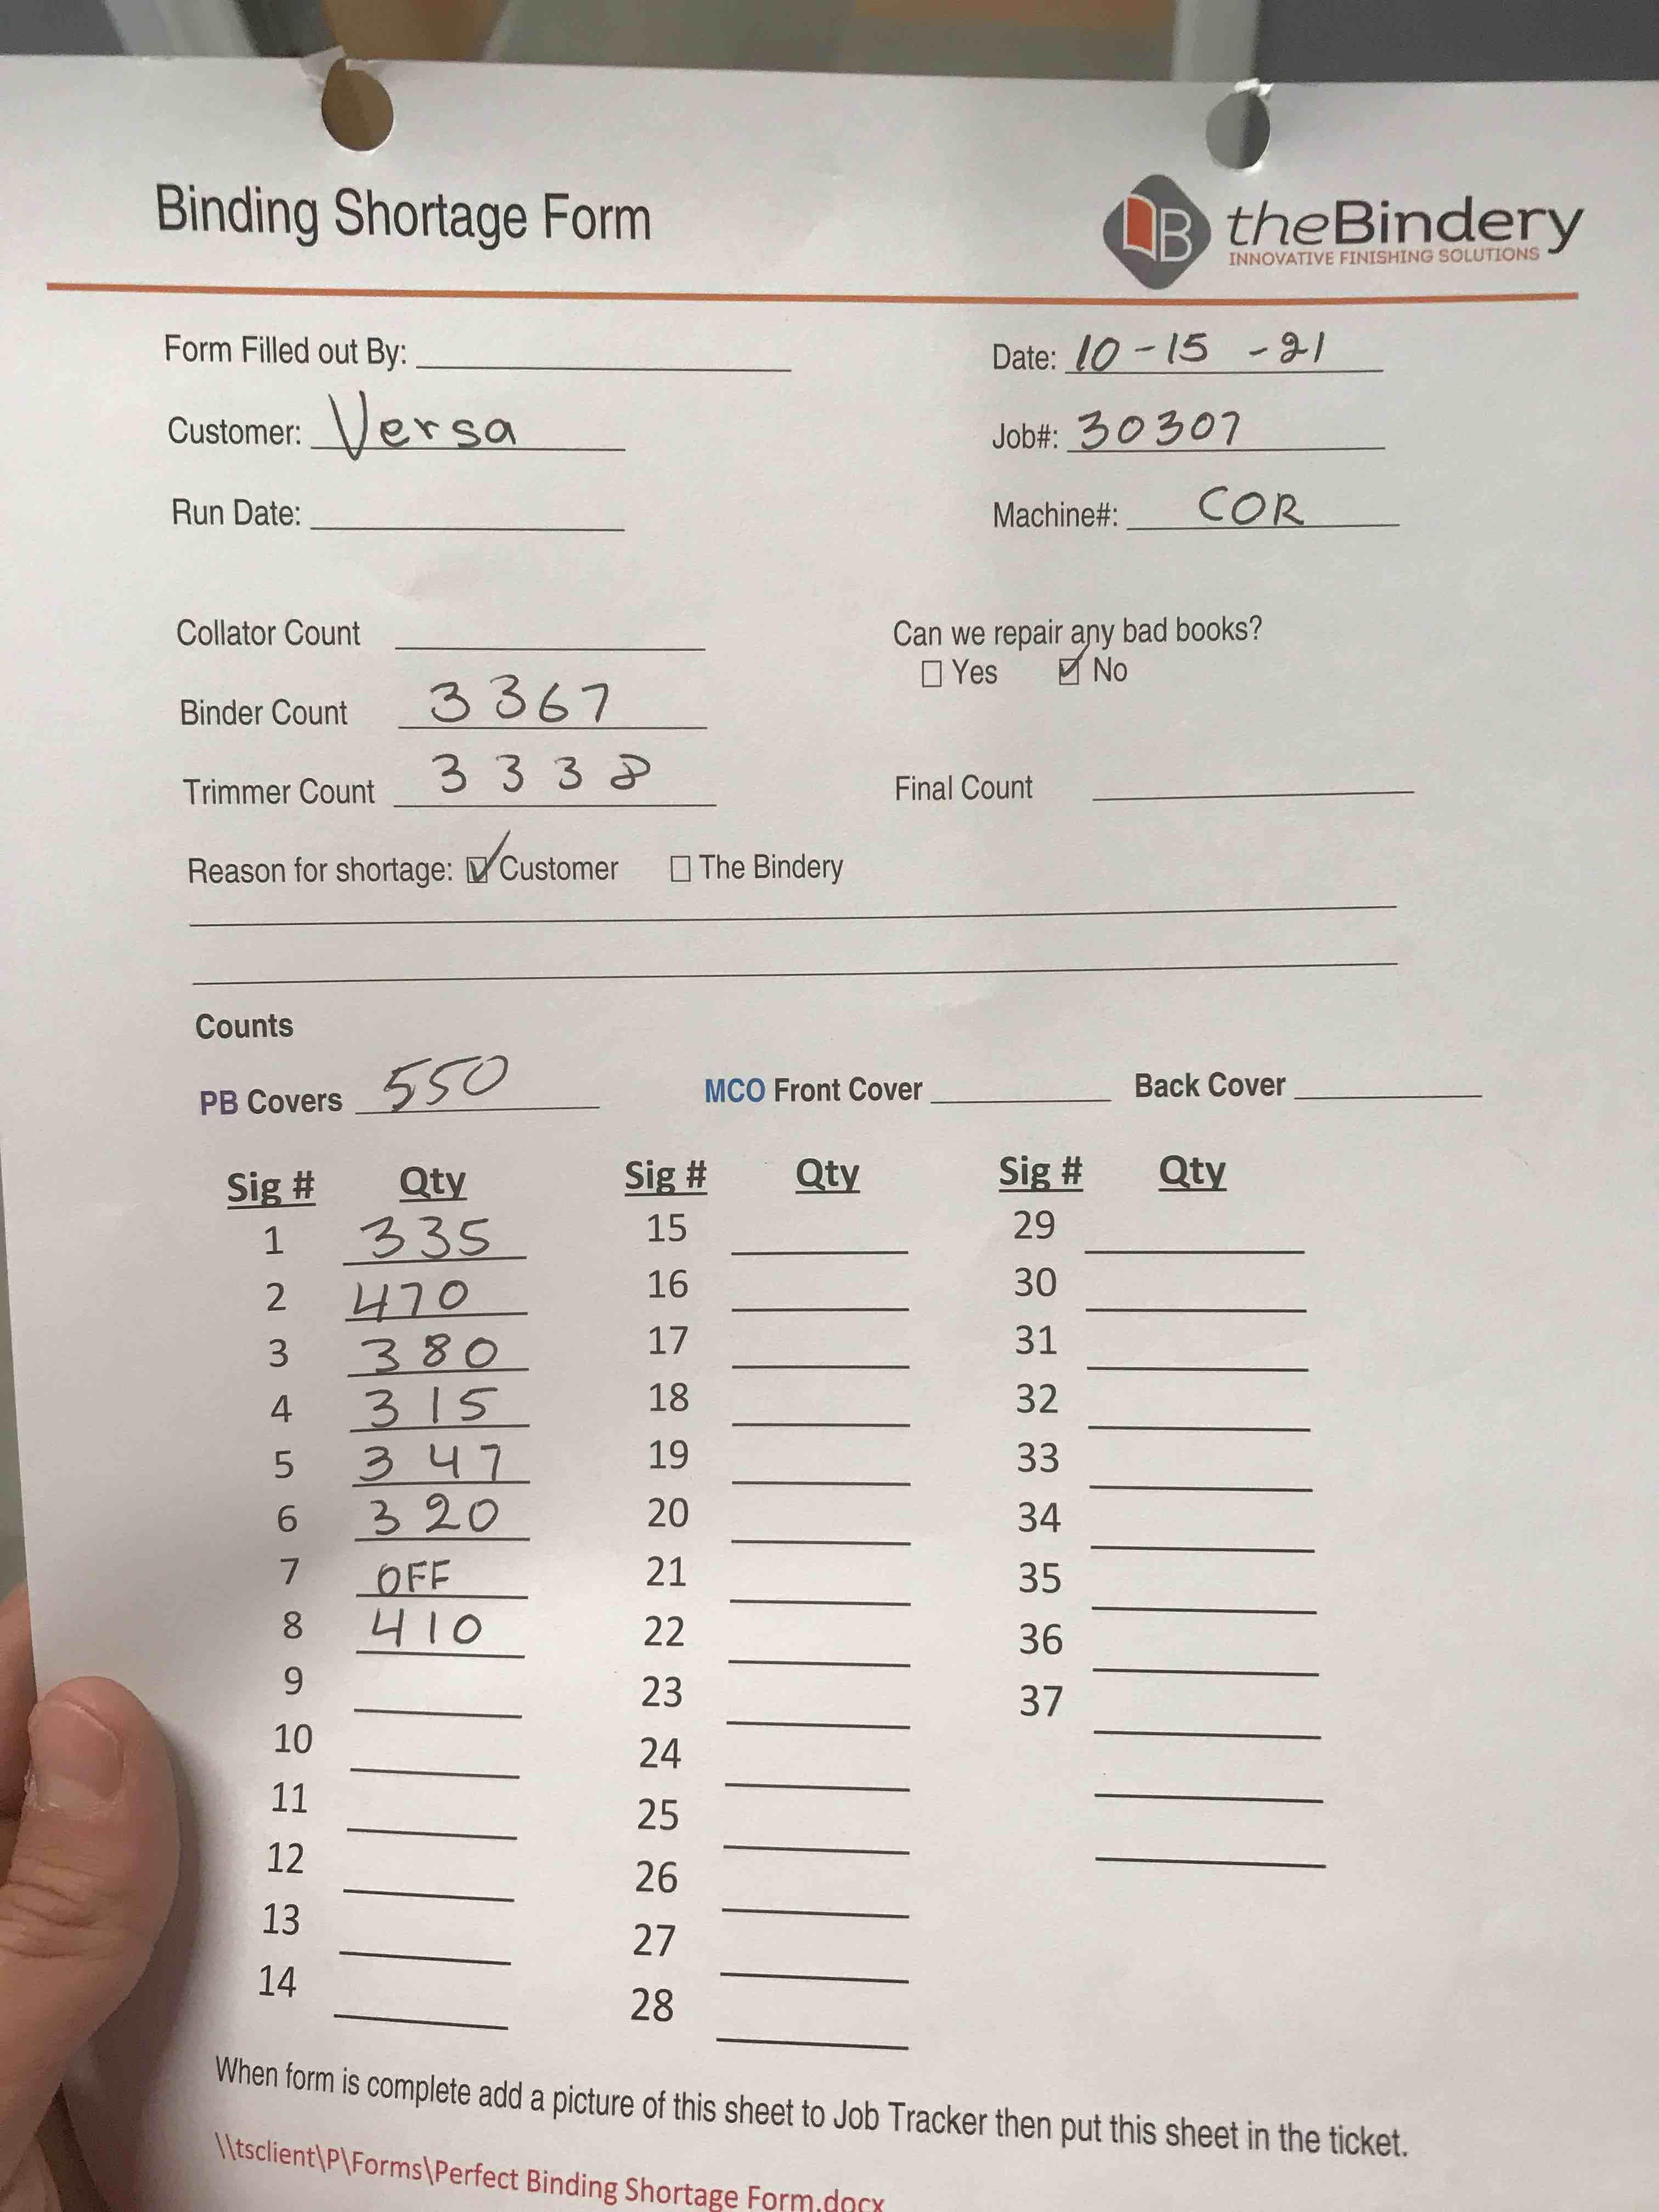 Binding Shortage Form
B theBindery
INNOVATIVE FINISHING SOLUTIONS
Form Filled out By: Date: 10-15-21
Customer: Versa Job#: 30307
Run Date: Machine#: COR
Collator Count Can we repair any bad books?
Yes No
Binder Count 3367
Trimmer Count 3338 Final Count
Reason for shortage: Customer The Bindery
Counts
PB Covers 550 MCO Front Cover Back Cover
Sig # Qty Sig # Qty Sig # Qty
1 335 15 29
2 470 16 30
3 380 17 31
4 315 18 32
5 347 19 33
6 320 20 34
7 OFF 21 35
8 410 22 36
9 23 37
10 24
11 25
12 26
13 27
14 28
When form is complete add a picture of this sheet to Job Tracker then put this sheet in the ticket.
\\tsclient\P\Forms\Perfect Binding Shortage Form.docx